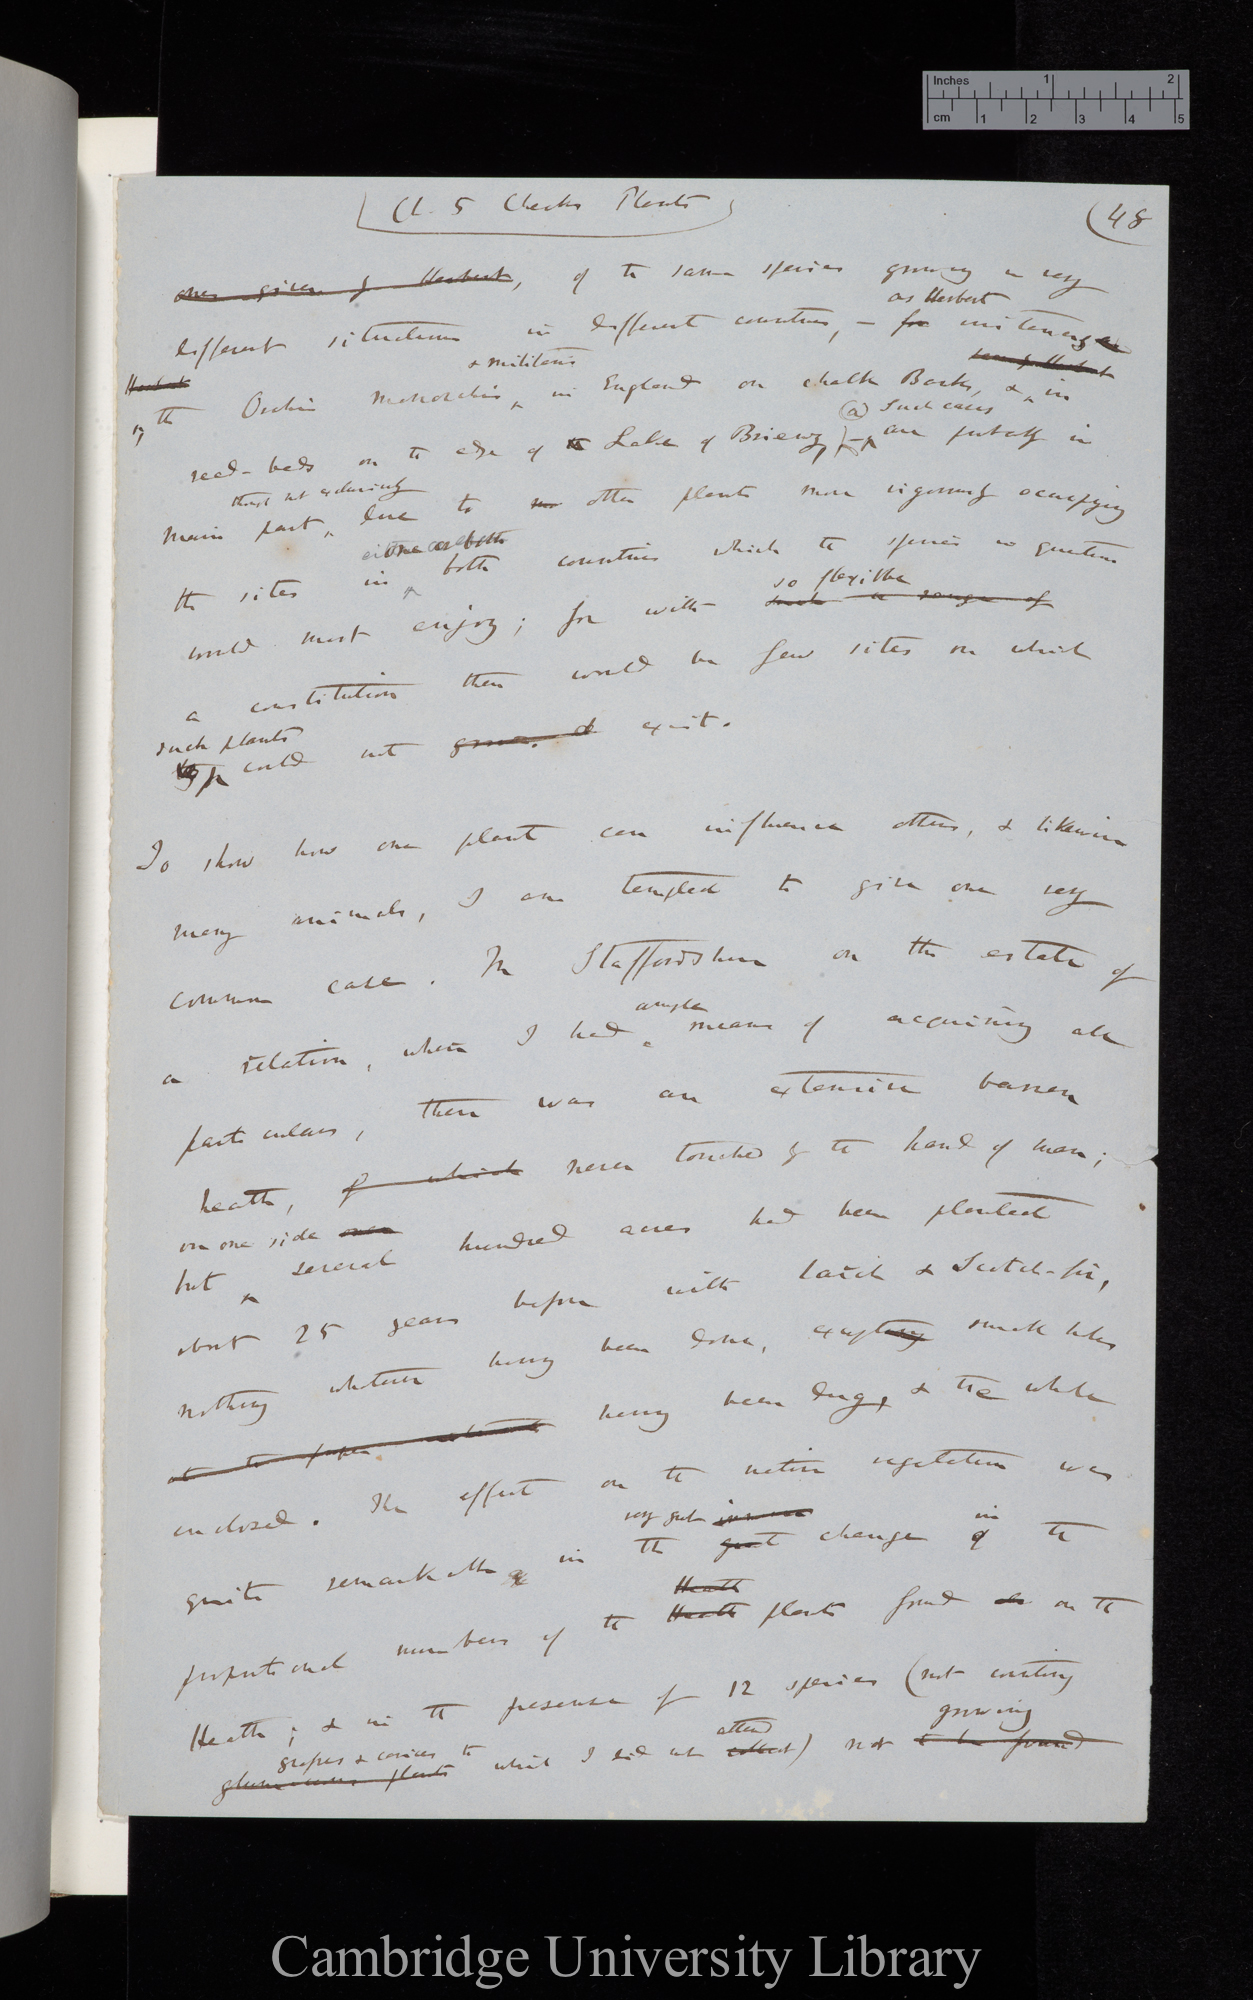 Inches 1 2
cm 1 2 3 4 5
Ch. 5 Checks Plants
(48
ones given by Herbert, of the same species growing in very
as Herbert
different situations in different countries, — for instancing
Herbert
& militaris
by the Orchis monorchis, in England on chalk Banks, & in
(a) Such cases
reed-beds on the edge of the Lake of Brienz, — are probably in
though not exclusively
main part, due to other plants more vigorously occupying
either or both
the sites in both countries which the species in question
so flexible
would most enjoy; for with such a range of
a constitution there would be few sites on which
such plants
they could not grow & exist.
To show how one plant can influence others, & likewise
many animals, I am tempted to give one very
common case. In Staffordshire on the estate of
ample
a relation, where I had means of acquiring all
particulars, there was an extensive barren
heath, of which never touched by the hand of man;
on one side
but several hundred acres had been planted
about 25 years before with larch & Scotch-fir,
nothing whatever having been done, excepting small holes
at the proper having been dug, & the whole
enclosed. The effect on the native vegetation was
very great in
quite remarkable in the great change of the
Heath
proportional numbers of the Heath plants found on the
Heath; & in the presence of 12 species (not counting
grasses & carices to attend growing
glumaceous plants which I did not collect) not to be found
Cambridge University Library